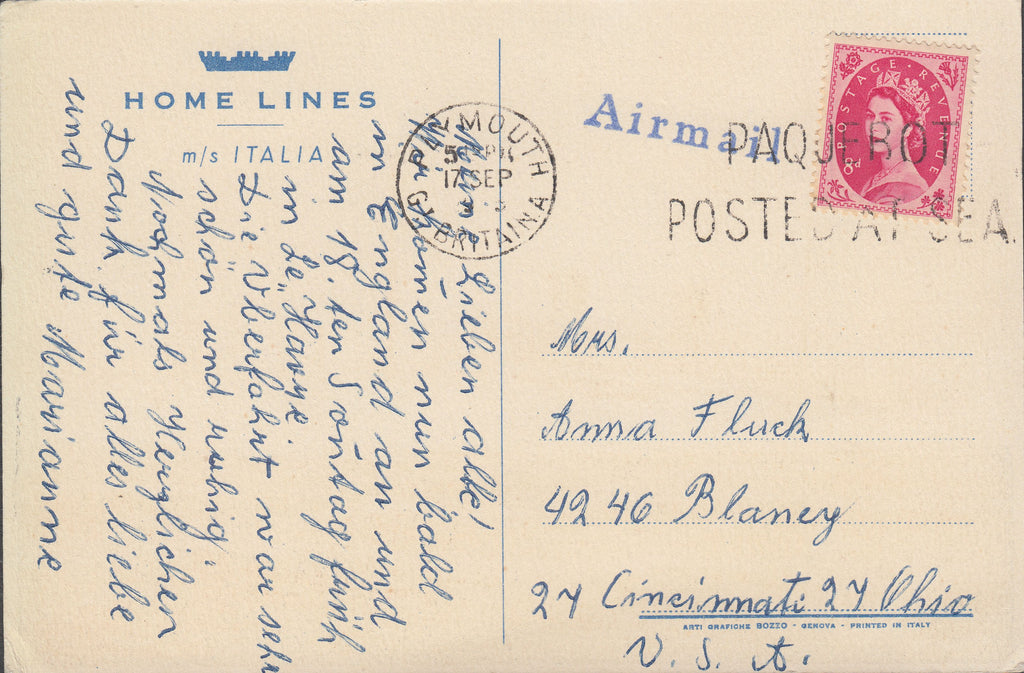 HOME LINES
m/s ITALIA
Meine Lieben alle!
Wir kom̄en nun bald
in England an und
am 18. ten Son̄tag früh
in "Le Havre.
Die Überfahrt war sehr
schön und ruhig.
Nochmals Herzlichen
Dank für alles liebe
und gute Marianne
PLYMOUTH
17 SEP
GT BRITAIN
Airmail
PAQUEBOT
POSTED AT SEA.
POSTAGE REVENUE
8d
Mrs.
Anna Fluck
4246 Blaney
27 Cincinnati 27 Ohio
U. S. A.
ARTI GRAFICHE BOZZO - GENOVA - PRINTED IN ITALY